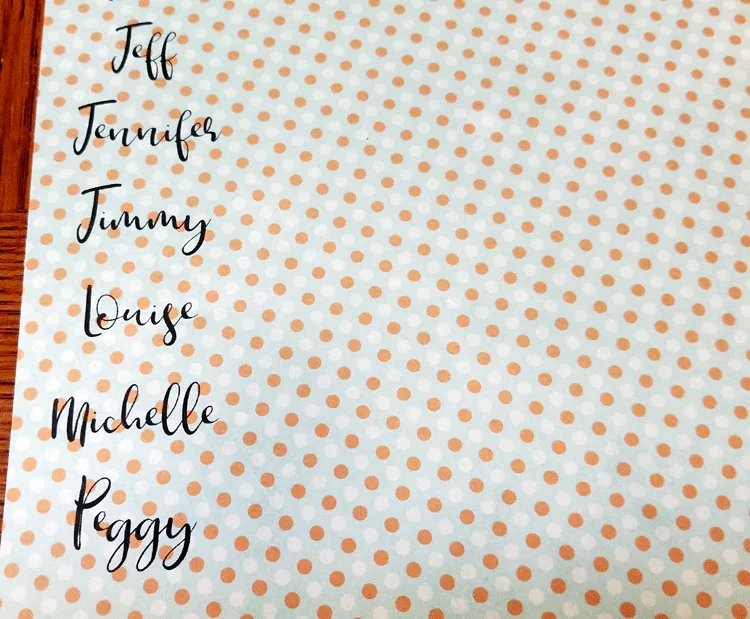 Jeff
Jennifer
Jimmy
Louise
Michelle
Peggy